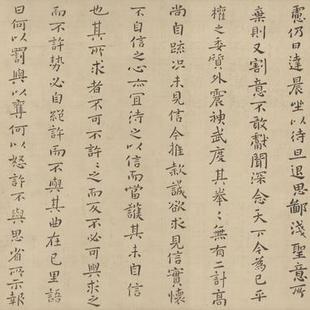 慮仍日達晨坐以待旦退思鄙淺聖意所
棄則又割意不敢獻聞深念天下今為已平
權之委質外震神武度其拳〻無有二計高
尚自疏況未見信今推款誠欲求見信實懷
不自信之心亦宜待之以信而當護其未自信
也其所求者不可不許〻之而反不必可與求之
而不許勢必自絕許而不與其曲在己里語
曰何以罰與以奪何以怒許不與思省所示報